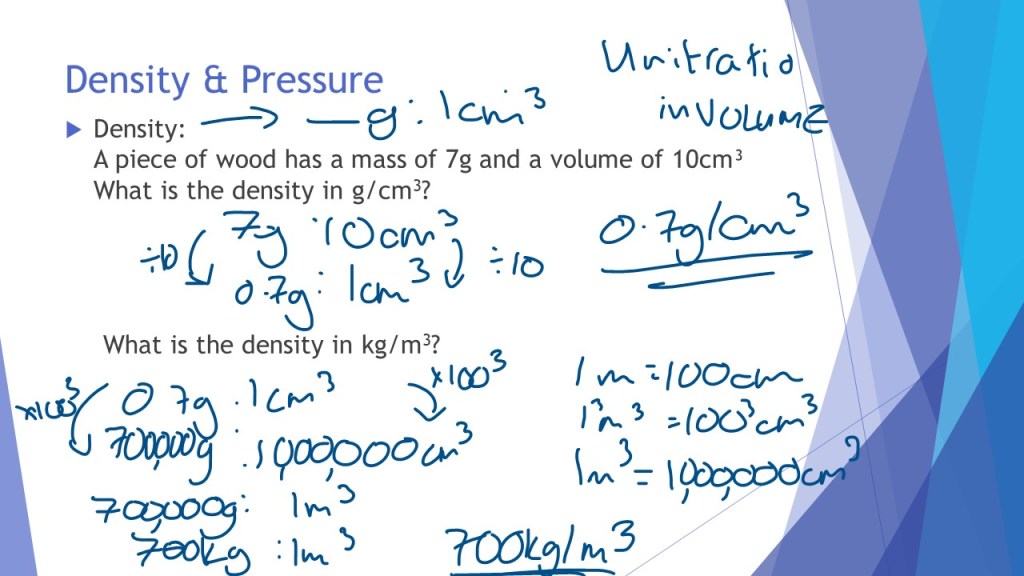 Unit ratio
in VOLUME
Density & Pressure
Density: → _g : 1cm³
A piece of wood has a mass of 7g and a volume of 10cm³
What is the density in g/cm³?
7g : 10cm³
÷10 ÷10
0.7g : 1cm³
0.7g/cm³
What is the density in kg/m³?
×100³ ×100³
0.7g : 1cm³
700,000g : 1,000,000cm³
700,000g : 1m³
700kg : 1m³
1m = 100cm
1³m³ = 100³cm³
1m³ = 1,000,000cm³
700kg/m³